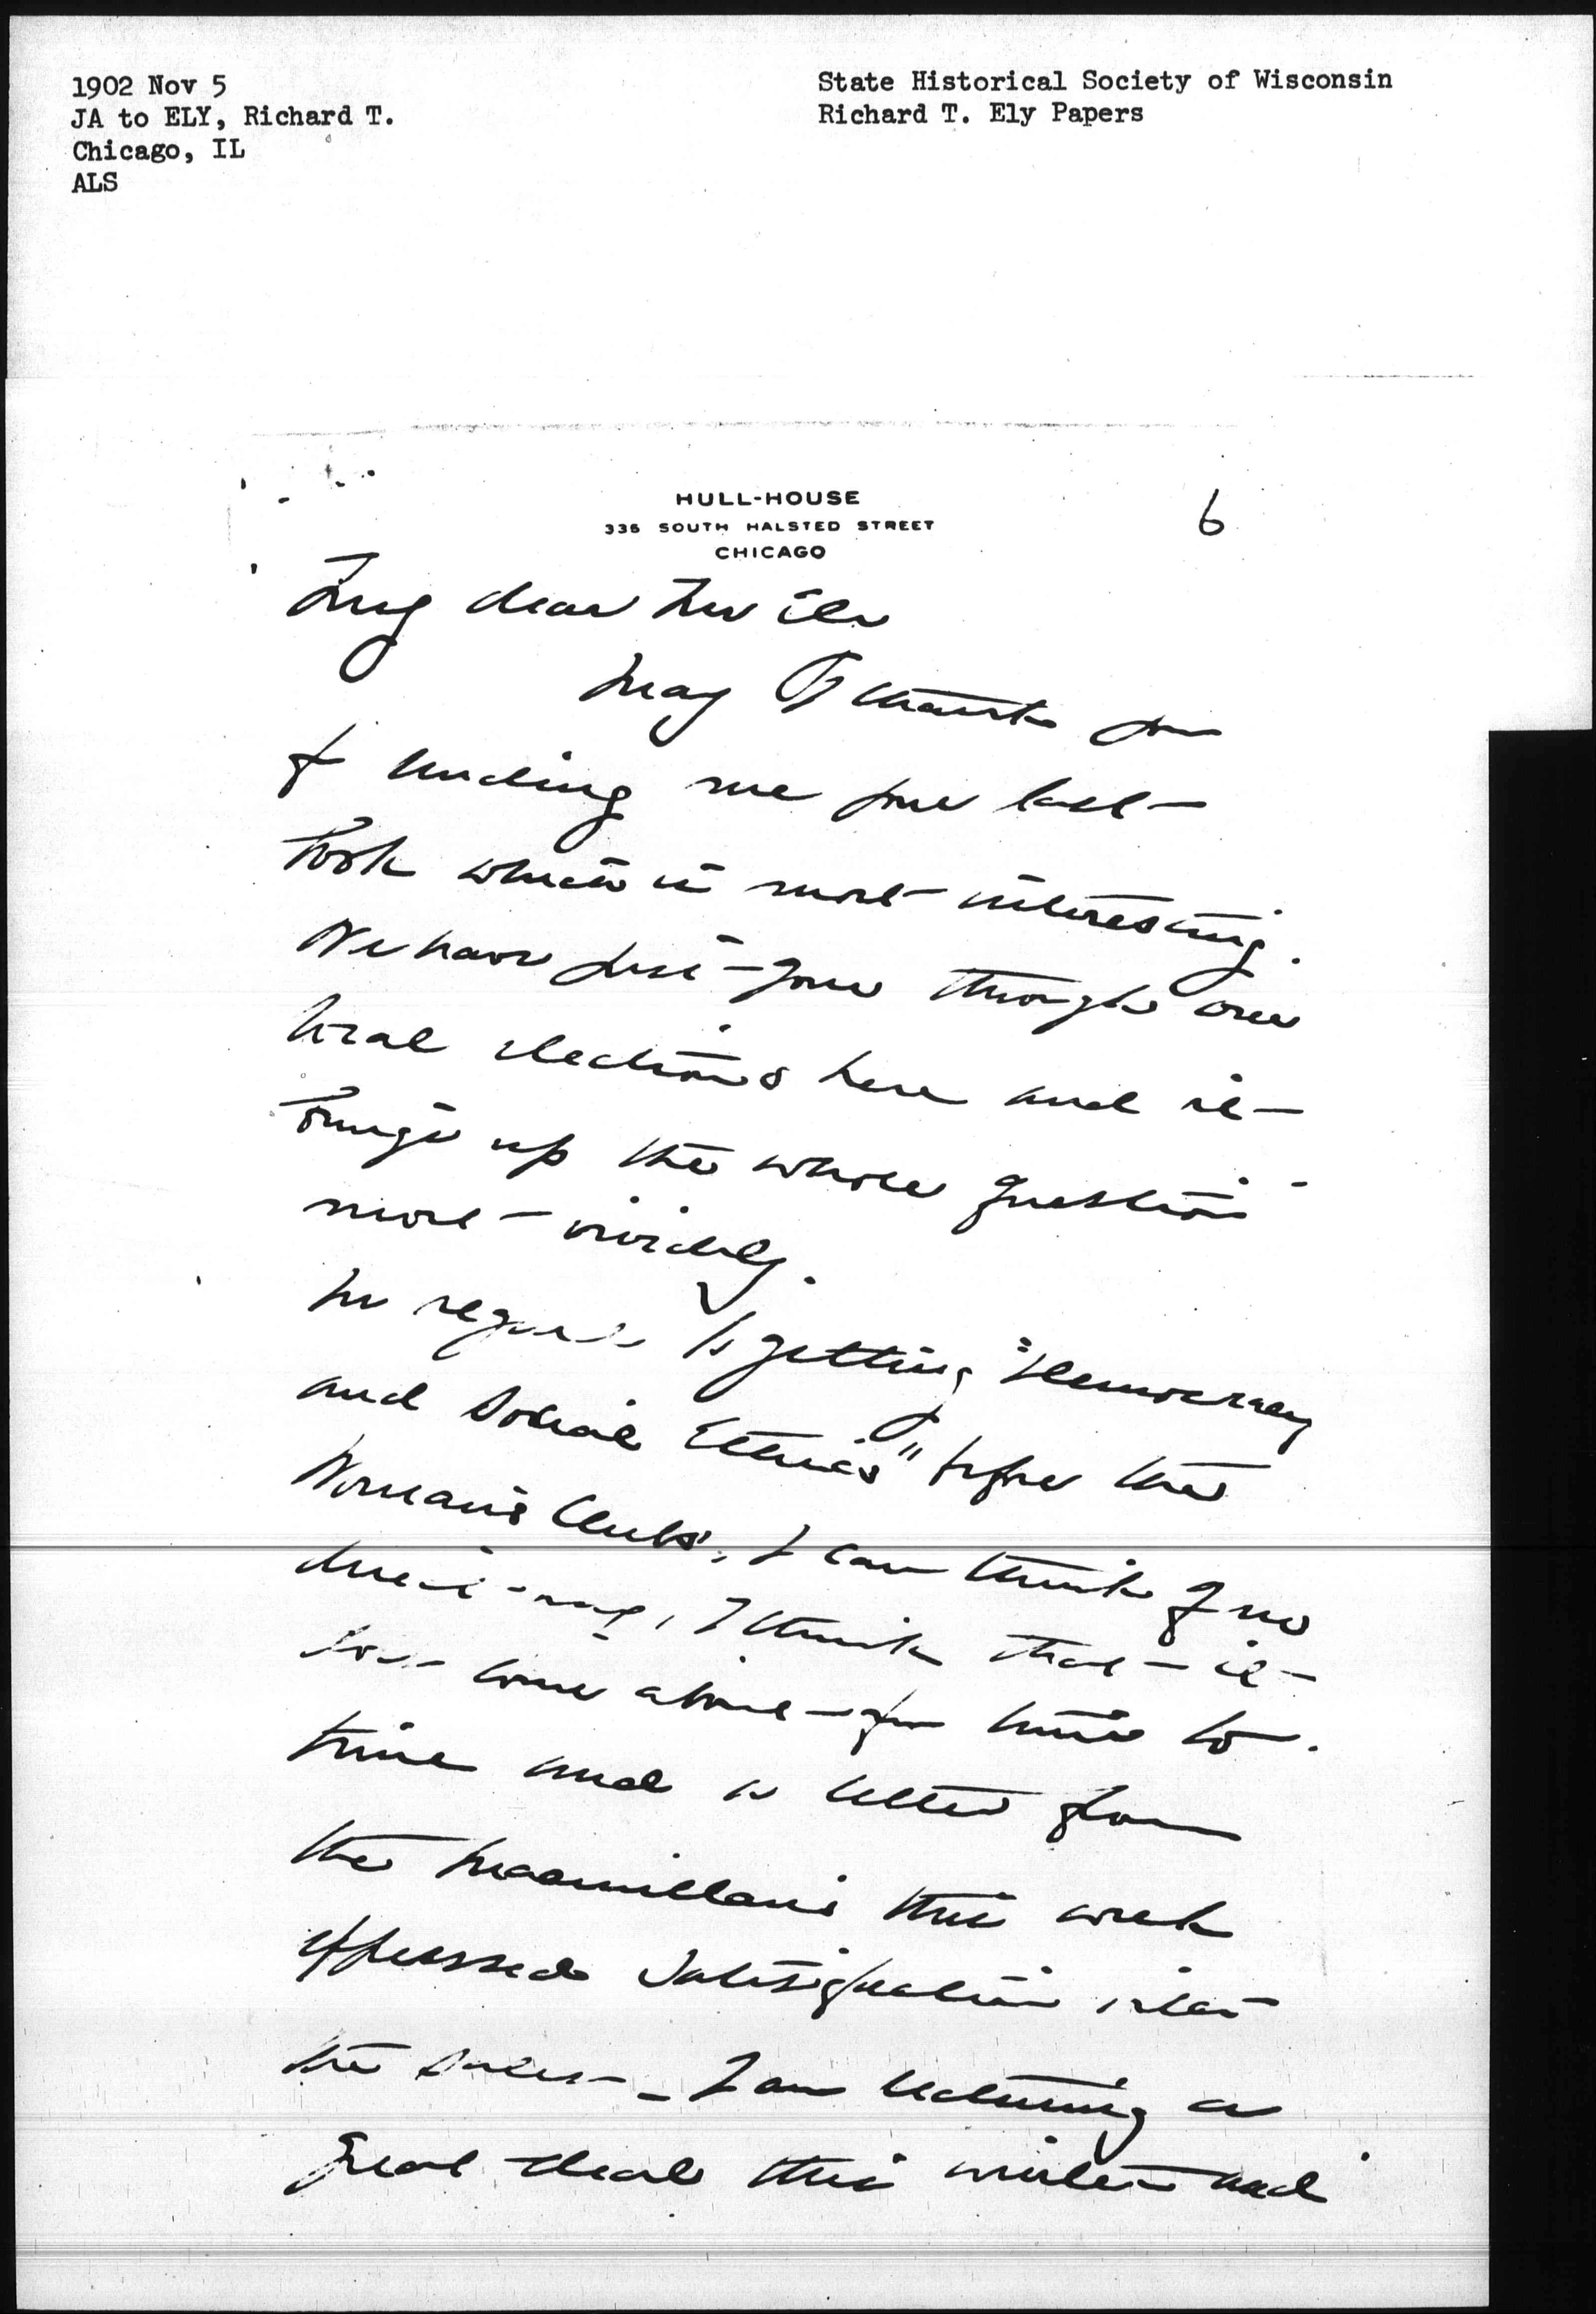 1902 Nov 5
JA to ELY, Richard T.
Chicago, IL
ALS
State Historical Society of Wisconsin
Richard T. Ely Papers
HULL-HOUSE
335 SOUTH HALSTED STREET
CHICAGO
6
My dear Mr Ely
May I thank you
for sending me your last
book which is most interesting.
We have just gone through our
local elections here and it
brings up the whole question
most vividly.
In regard to getting "Democracy
and Social Ethics" before the
Woman's Clubs, I can think of no
direct way, I think that it
does come about from time to
time and a letter from
the Macmillans this week
expressed satisfaction with
the sales - I am lecturing a
great deal this winter and